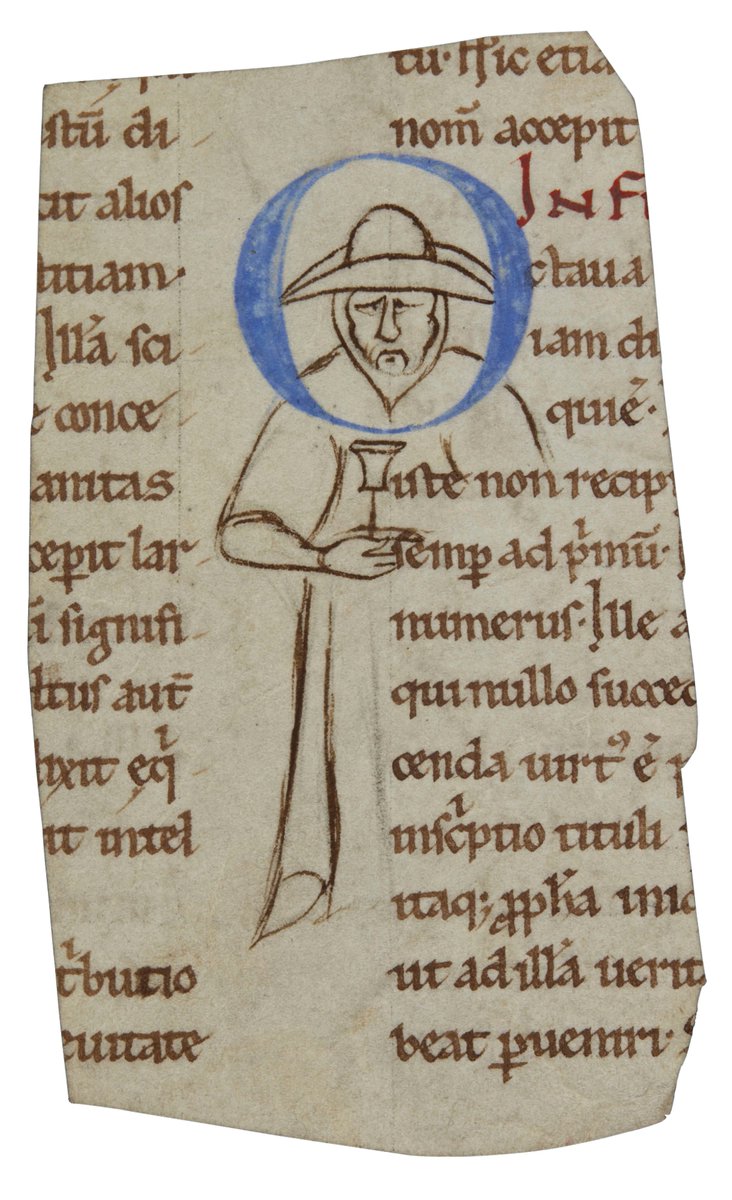 stū di
tit alios
titiam·
Illa̅ sci
e conce
anitas
cep̲it lar
ū signifi
ltus aut̄
lixit eqͥ
it intel
tͥbutio
euitate
tū· Hic etia
nom̄ accepit
IN FI
Octaua
iam di
qui ē·
iste non recipi
semp̲ ad pͥmū·
numerus· Ille a
qui nullo succed
cenda uirtꝰ ē
inscͥptio tituli
itaq; ꝓph̄a
ut ad illā uerit
beat p̲ueniri· S